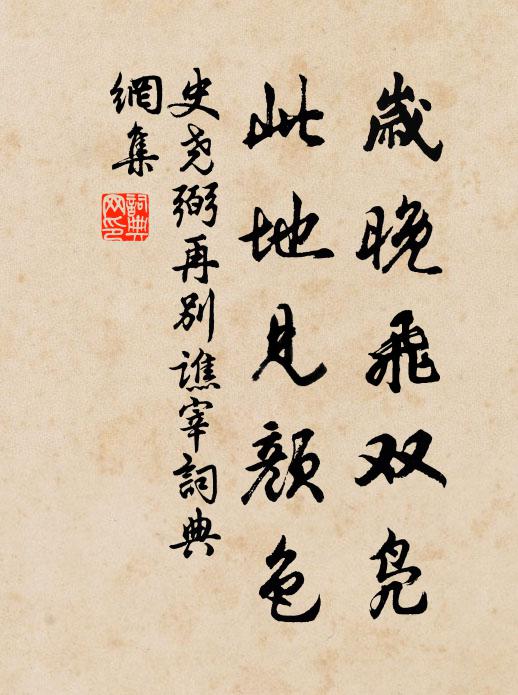 歲晚飛双凫
此地見顏色
史尧弼再别譙宰詞典
網集
詞典
网印